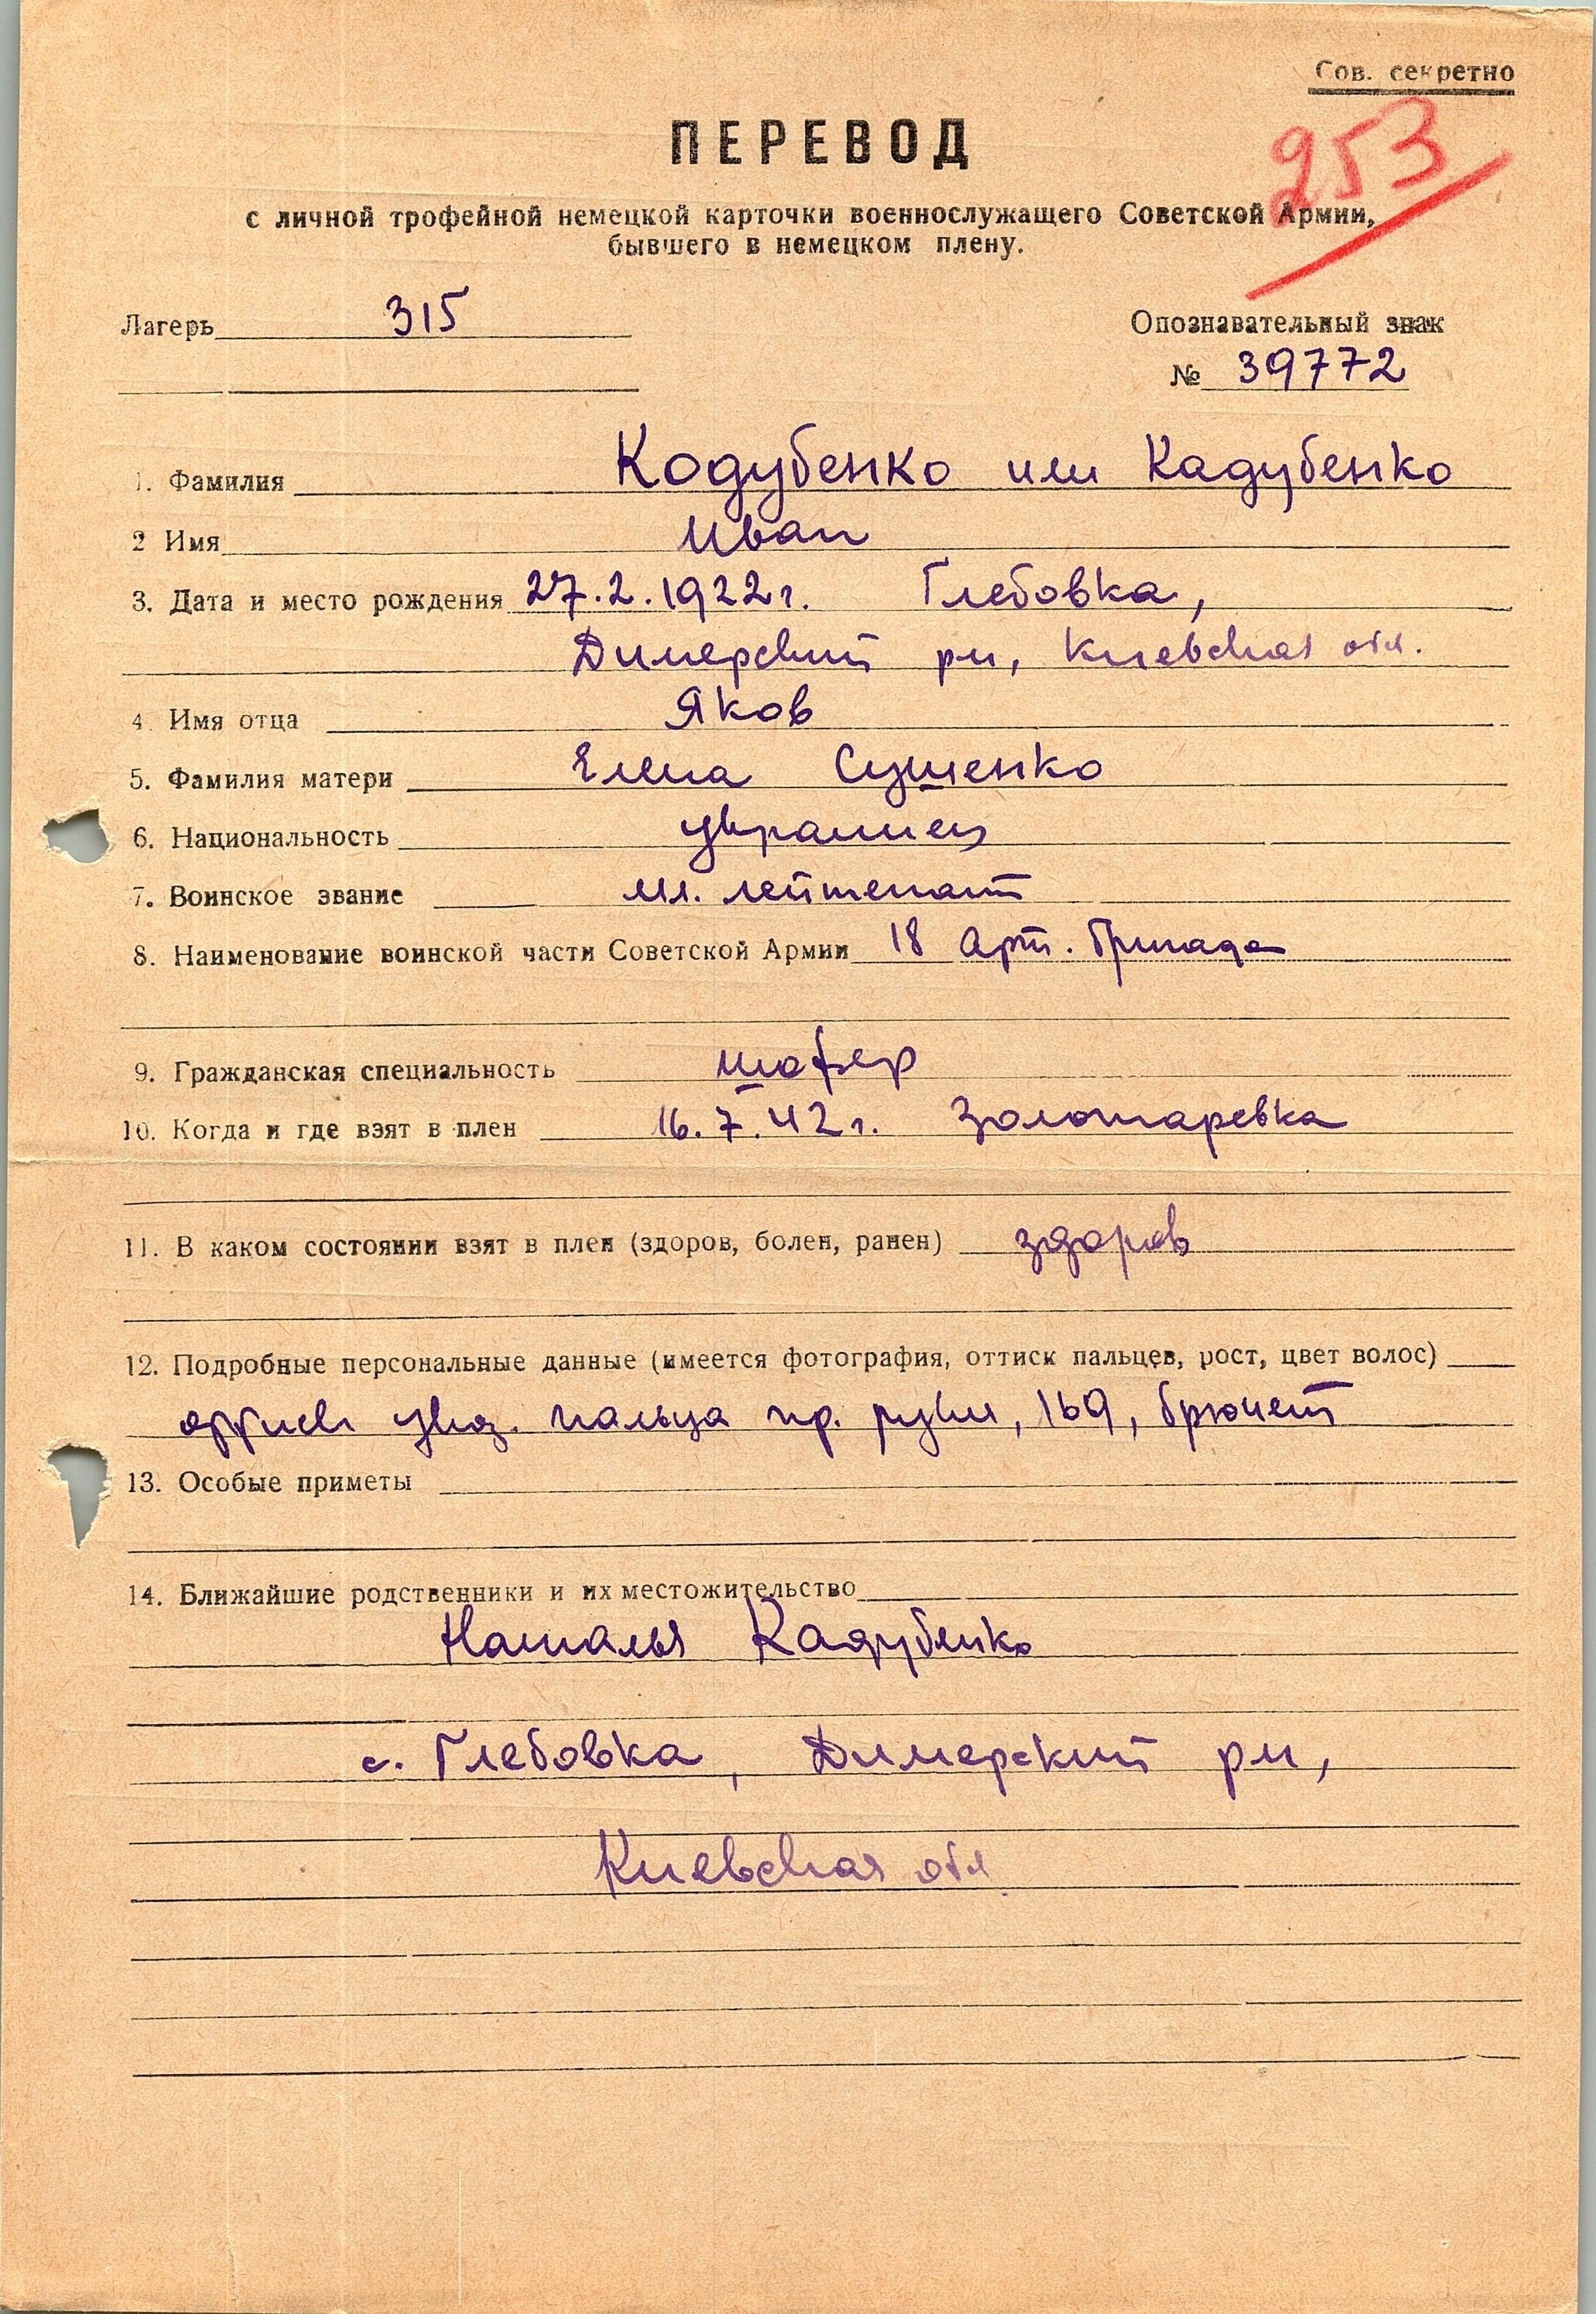 Сов. секретно
253
ПЕРЕВОД
с личной трофейной немецкой карточки военнослужащего Советской Армии,
бывшего в немецком плену.
Лагерь 315
Опознавательный знак
№ 39772
1. Фамилия Кодубенко или Кадубенко
2 Имя Иван
3. Дата и место рождения 27.2.1922 г. Глебовка,
Димерский рн, Киевская обл.
4. Имя отца Яков
5. Фамилия матери Елена Сушенко
6. Национальность украинец
7. Воинское звание мл. лейтенант
8. Наименование воинской части Советской Армии 18 Арт. бригада
9. Гражданская специальность шофер
10. Когда и где взят в плен 16.7.42 г. Золотаревка
11. В каком состоянии взят в плен (здоров, болен, ранен) здоров
12. Подробные персональные данные (имеется фотография, оттиск пальцев, рост, цвет волос)
оттиск указ. пальца пр. руки, 169, брюнет
13. Особые приметы
14. Ближайшие родственники и их местожительство
Наталья Кадубенко
с. Глебовка, Димерский рн,
Киевская обл